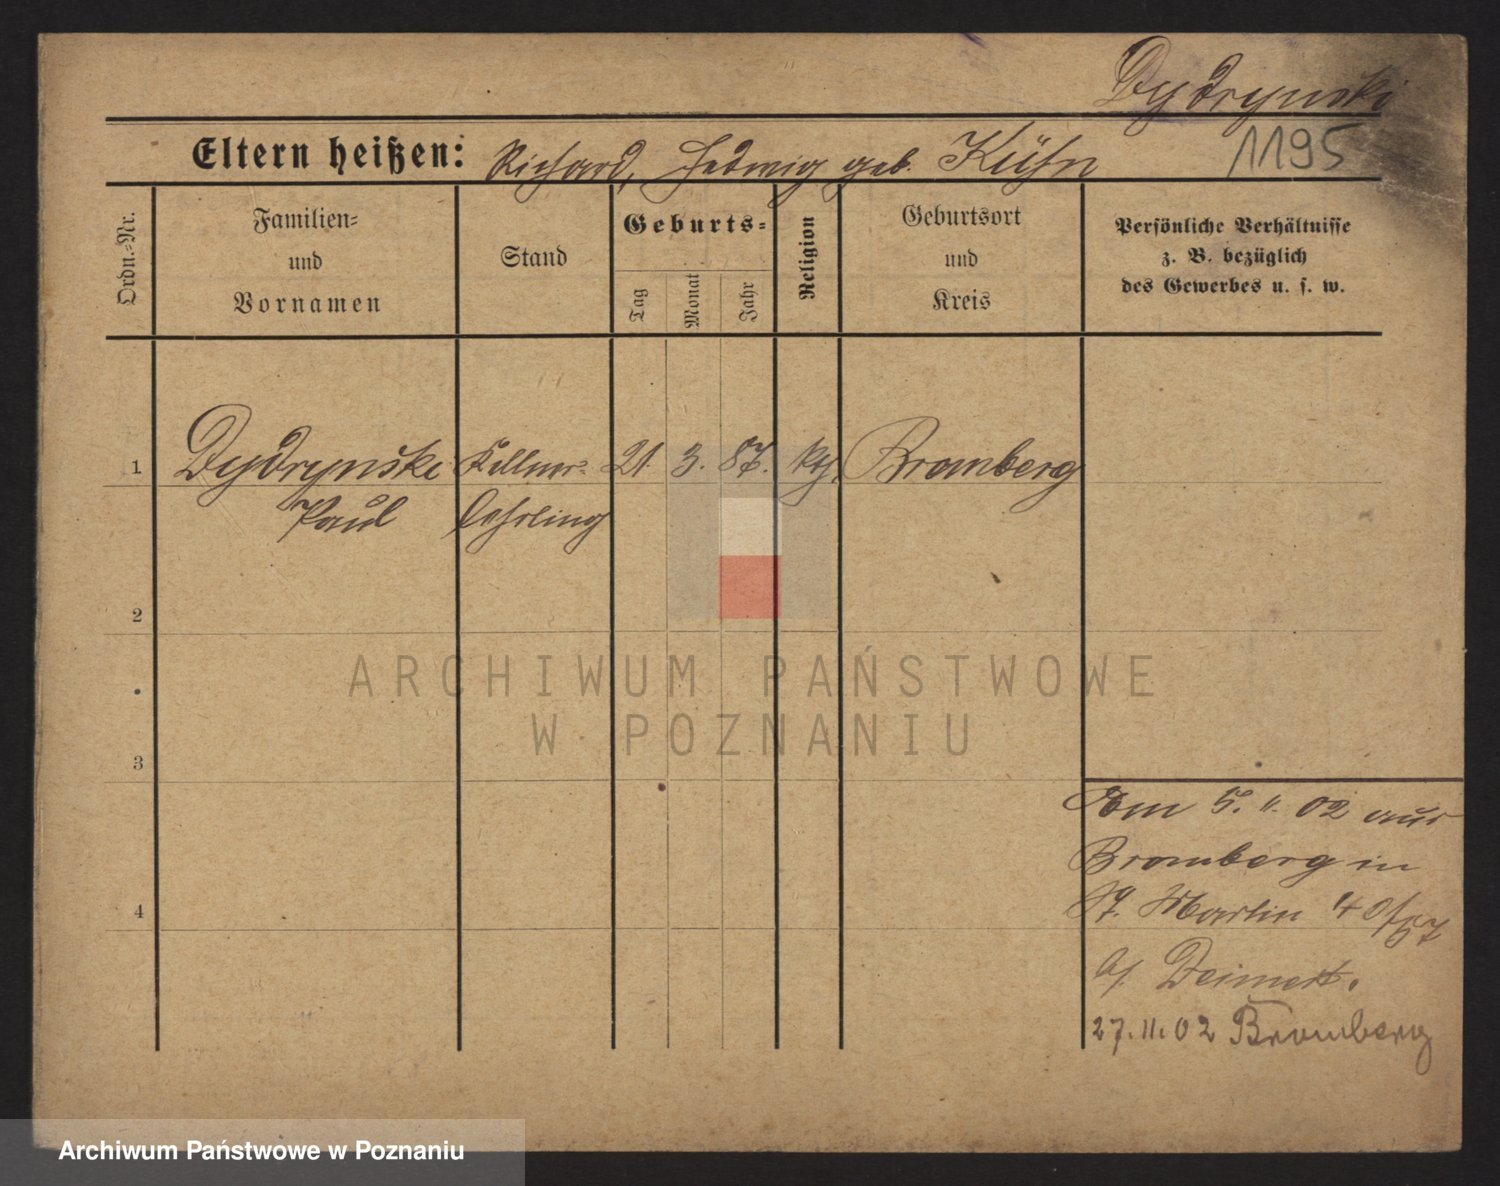 Dydrynski
Eltern heißen: Richard, Hedwig geb. Kühn
1195
Ordn.-Nr.
Familien-
und
Vornamen
Stand
Geburts-
Tag
Monat
Jahr
Religion
Geburtsort
und
Kreis
Persönliche Verhältnisse
z. B. bezüglich
des Gewerbes u. s. w.
1 Dydrynski Kellner- 21. 3. 87. kth. Bromberg
Paul lehrling
2
3
4
Am 5. 11. 02 aus
Bromberg in
St. Martin 40
b/
27. 11. 02 Bromberg
ARCHIWUM PAŃSTWOWE
W POZNANIU
Archiwum Państwowe w Poznaniu